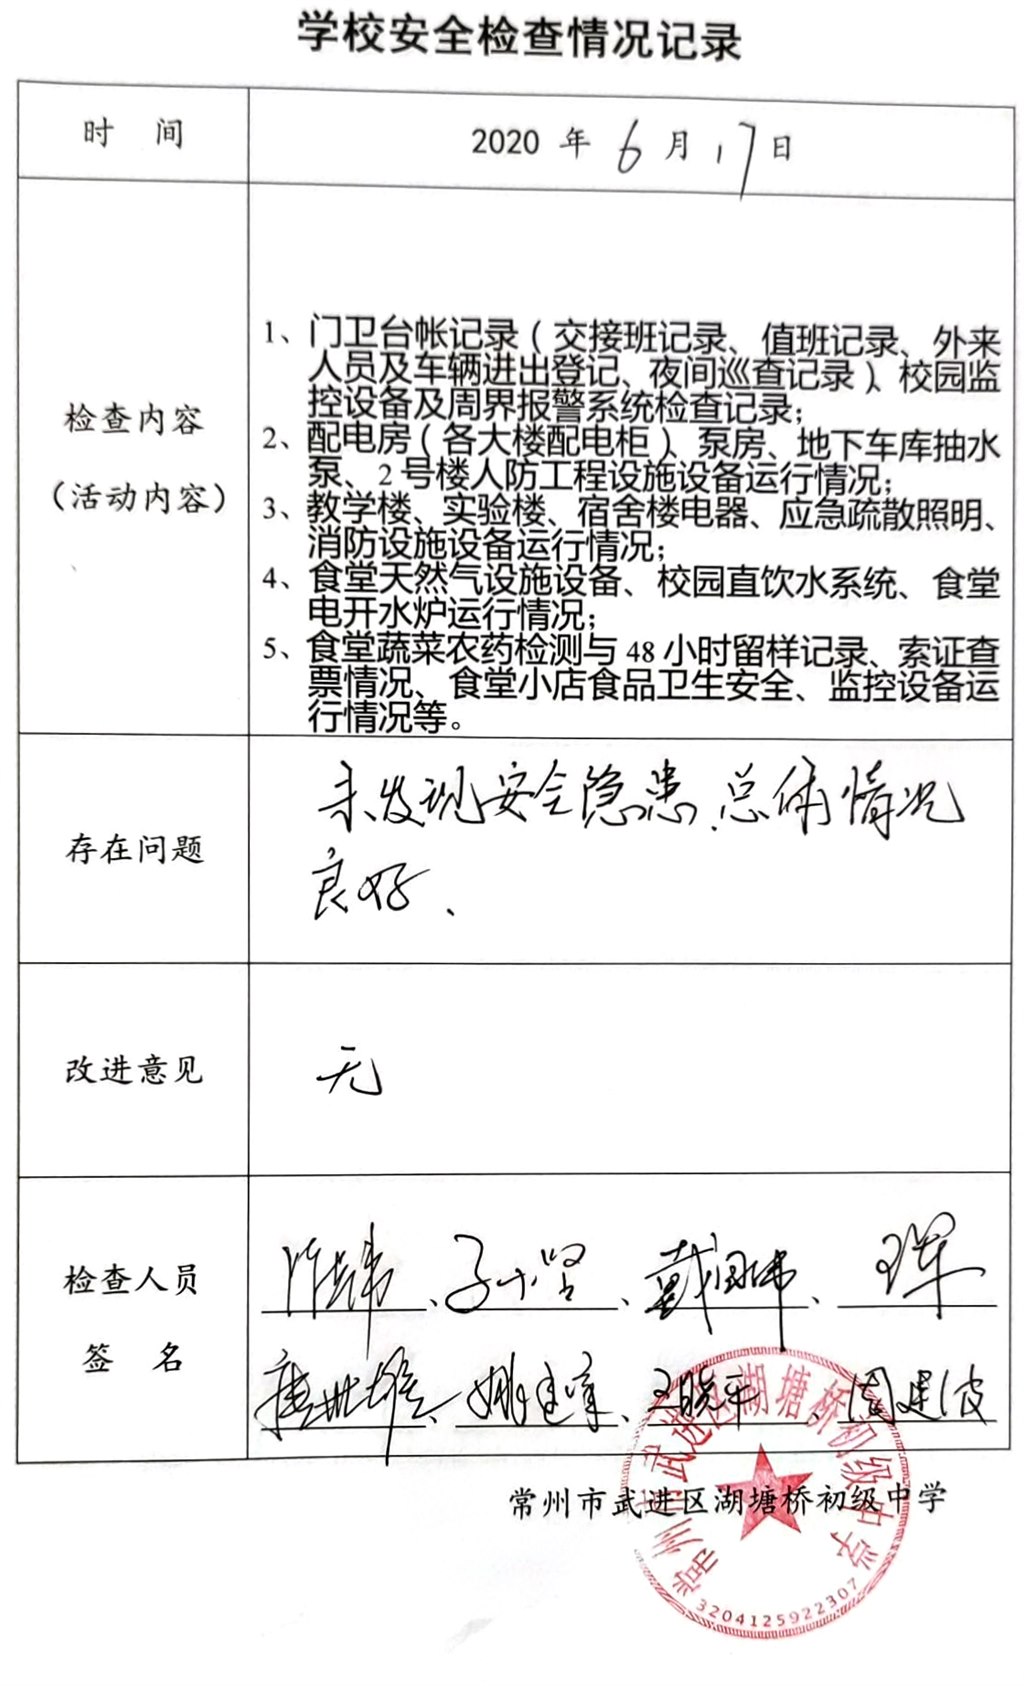 学校安全检查情况记录
时 间
2020 年 6 月 17 日
检查内容
（活动内容）
1、门卫台帐记录（交接班记录、值班记录、外来
人员及车辆进出登记、夜间巡查记录）、校园监
控设备及周界报警系统检查记录；
2、配电房（各大楼配电柜）、泵房、地下车库抽水
泵、2 号楼人防工程设施设备运行情况；
3、教学楼、实验楼、宿舍楼电器、应急疏散照明、
消防设施设备运行情况；
4、食堂天然气设施设备、校园直饮水系统、食堂
电开水炉运行情况；
5、食堂蔬菜农药检测与 48 小时留样记录、索证查
票情况、食堂小店食品卫生安全、监控设备运
行情况等。
存在问题
未发现安全隐患.总体情况
良好、
改进意见
无
检查人员
签 名
王晓平、周建波
常州市武进区湖塘桥初级中学
常州市武进区湖塘桥初级中学
3204125922307